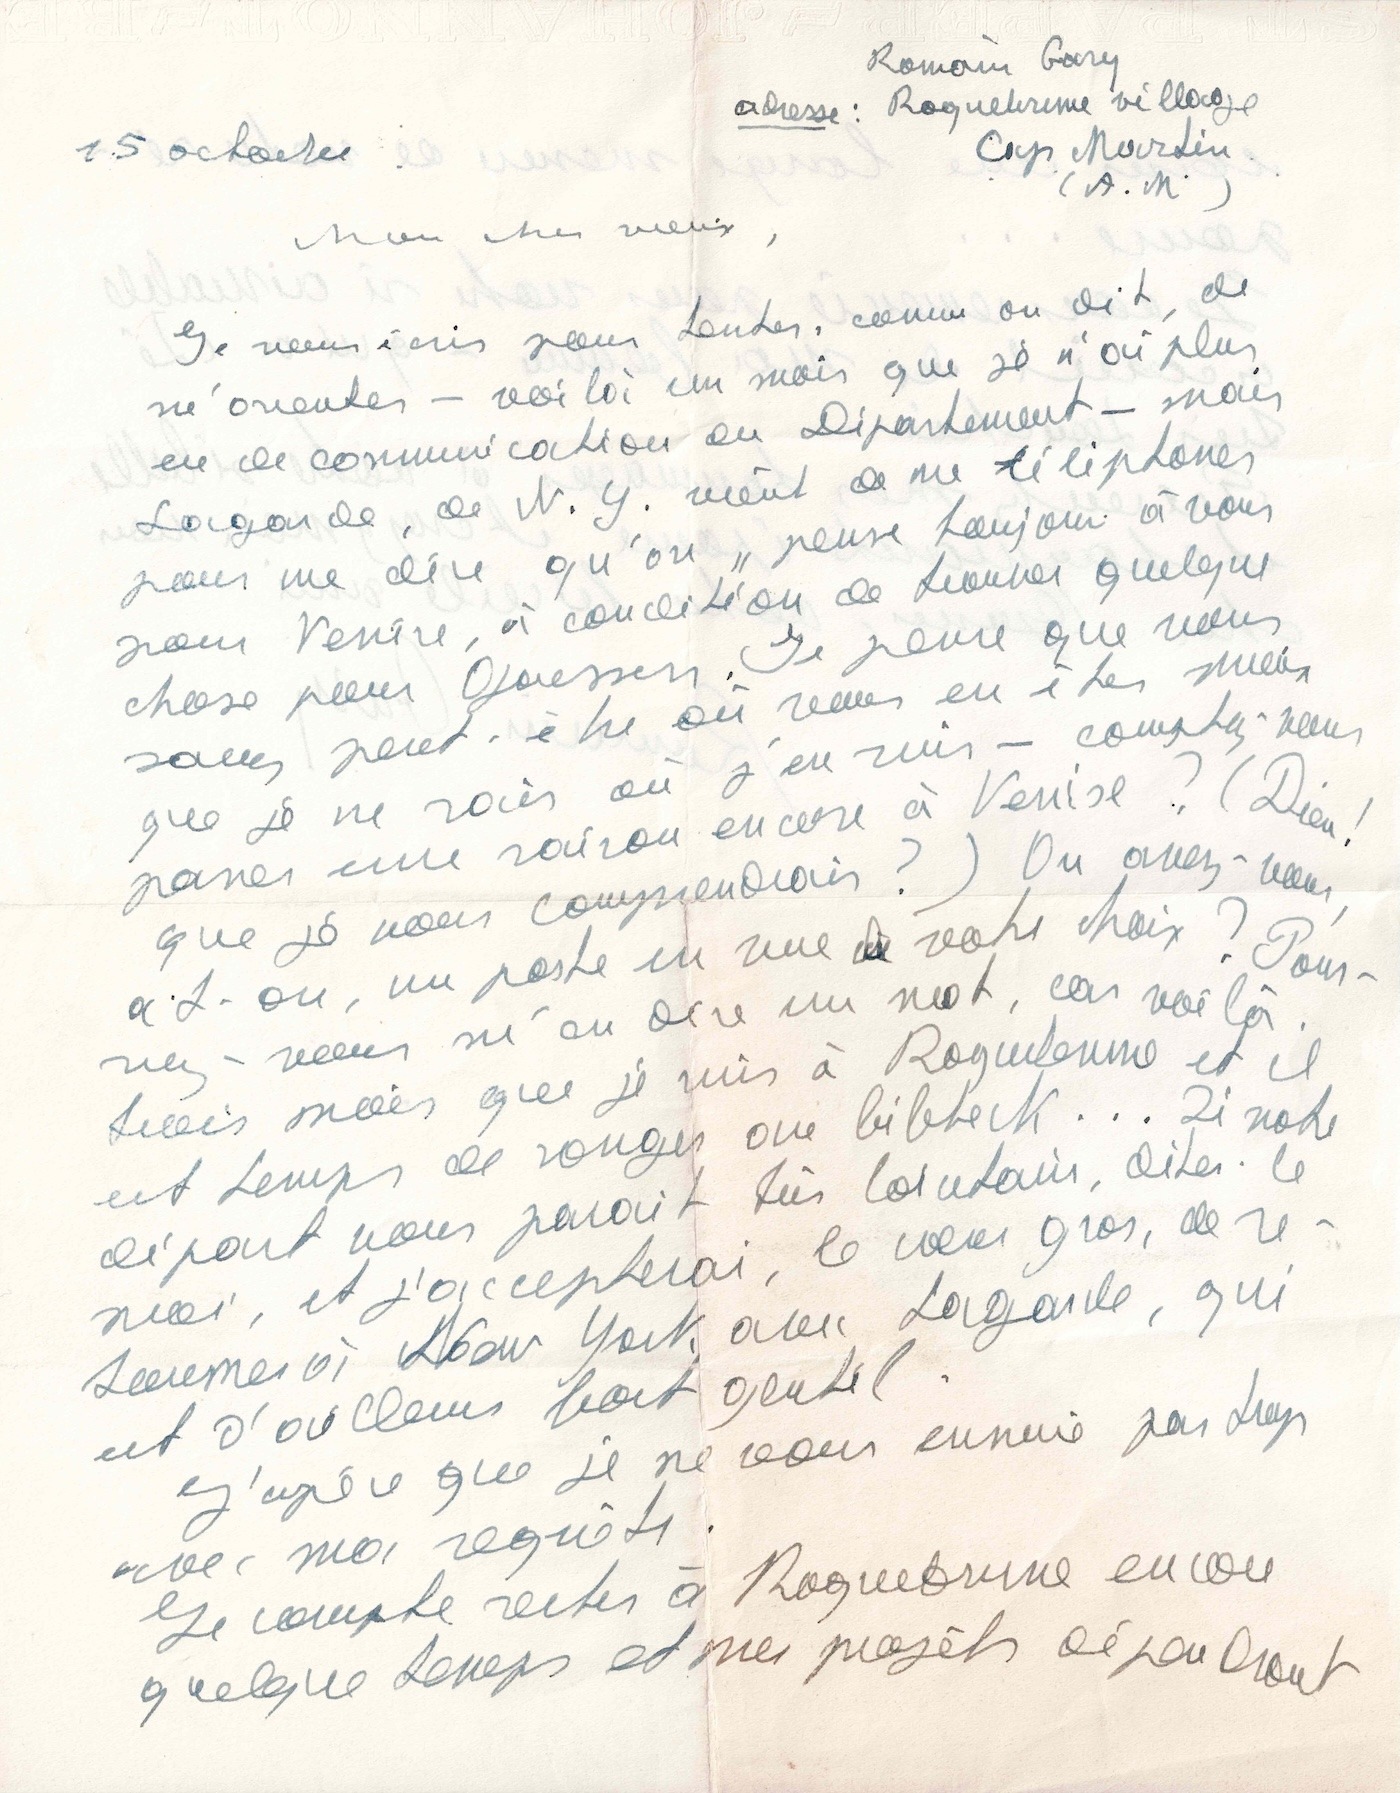 Romain Gary
adresse : Roquebrune village
Cap Martin
(A. M.)
15 octobre
Mon cher vieux,
Je vous écris pour tenter, comme on dit, de
m'orienter — voilà un mois que je n'ai plus
eu de communication du Département — mais
Lagarde, de N. Y. vient de me téléphoner
pour me dire qu'on „ pense toujours à vous
pour Venise, à condition de trouver quelque
chose pour Guessers. Je pense que vous
savez peut-être où vous en êtes mieux
que je ne sais où j'en suis — comptez-vous
passer une saison encore à Venise ? (Dieu !
que je vous comprendrais ? ) Ou avez-vous,
a-t-on, un poste en vue de votre choix ? Pour-
riez-vous m'en dire un mot, car voilà
trois mois que je suis à Roquebrune et il
est temps de songer au bifteck . . . Si votre
départ vous paraît très lointain, dites-le
moi, et j'accepterai, le cœur gros, de re-
tourner à New York avec Lagarde, qui
est d'ailleurs fort gentil.
J'espère que je ne vous ennuie pas trop
avec ma requête.
Je compte rester à Roquebrune encore
quelque temps et mes projets dépendront